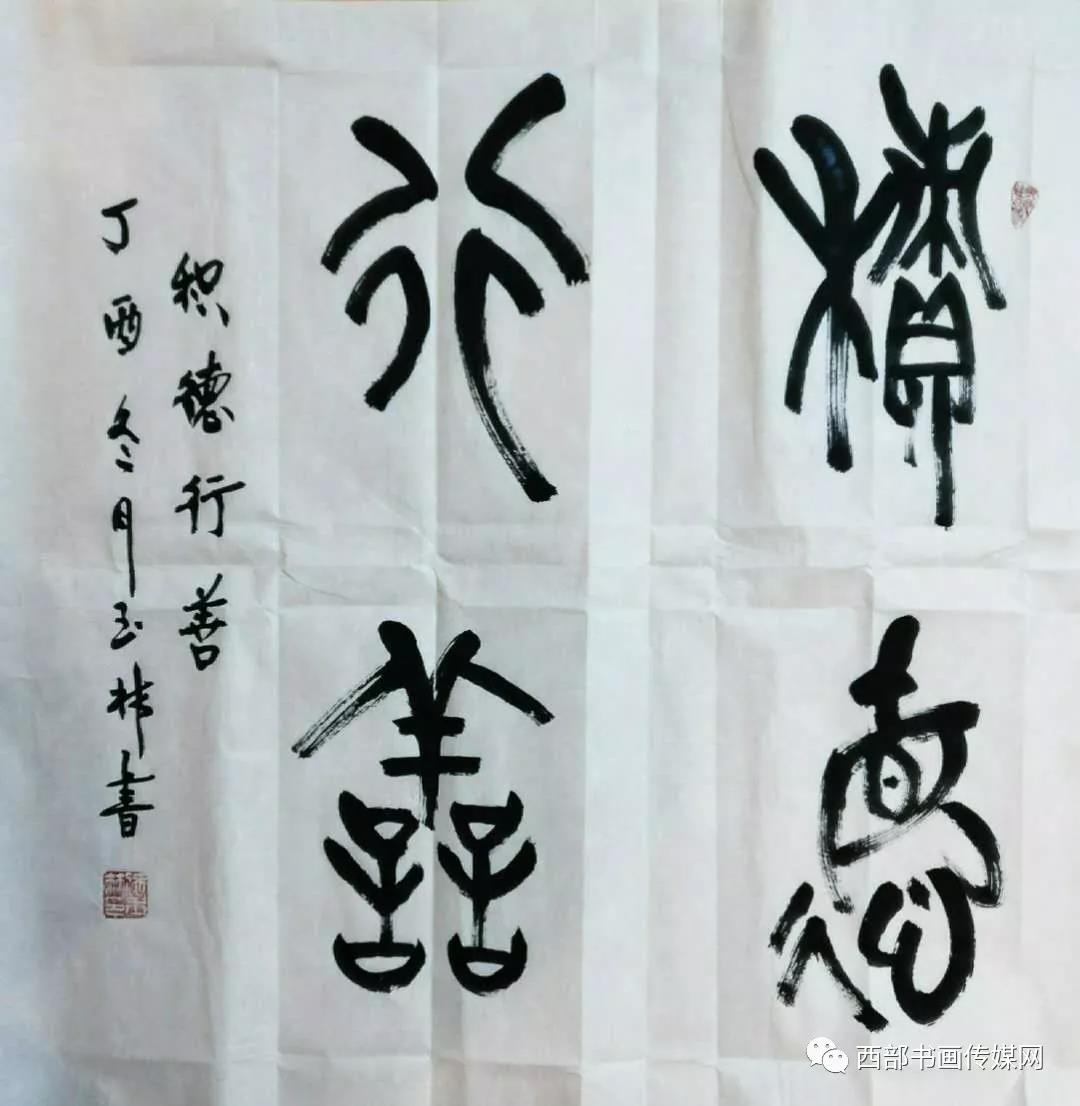 積德
行善
积德行善
丁酉冬月玉林书
西部书画传媒网